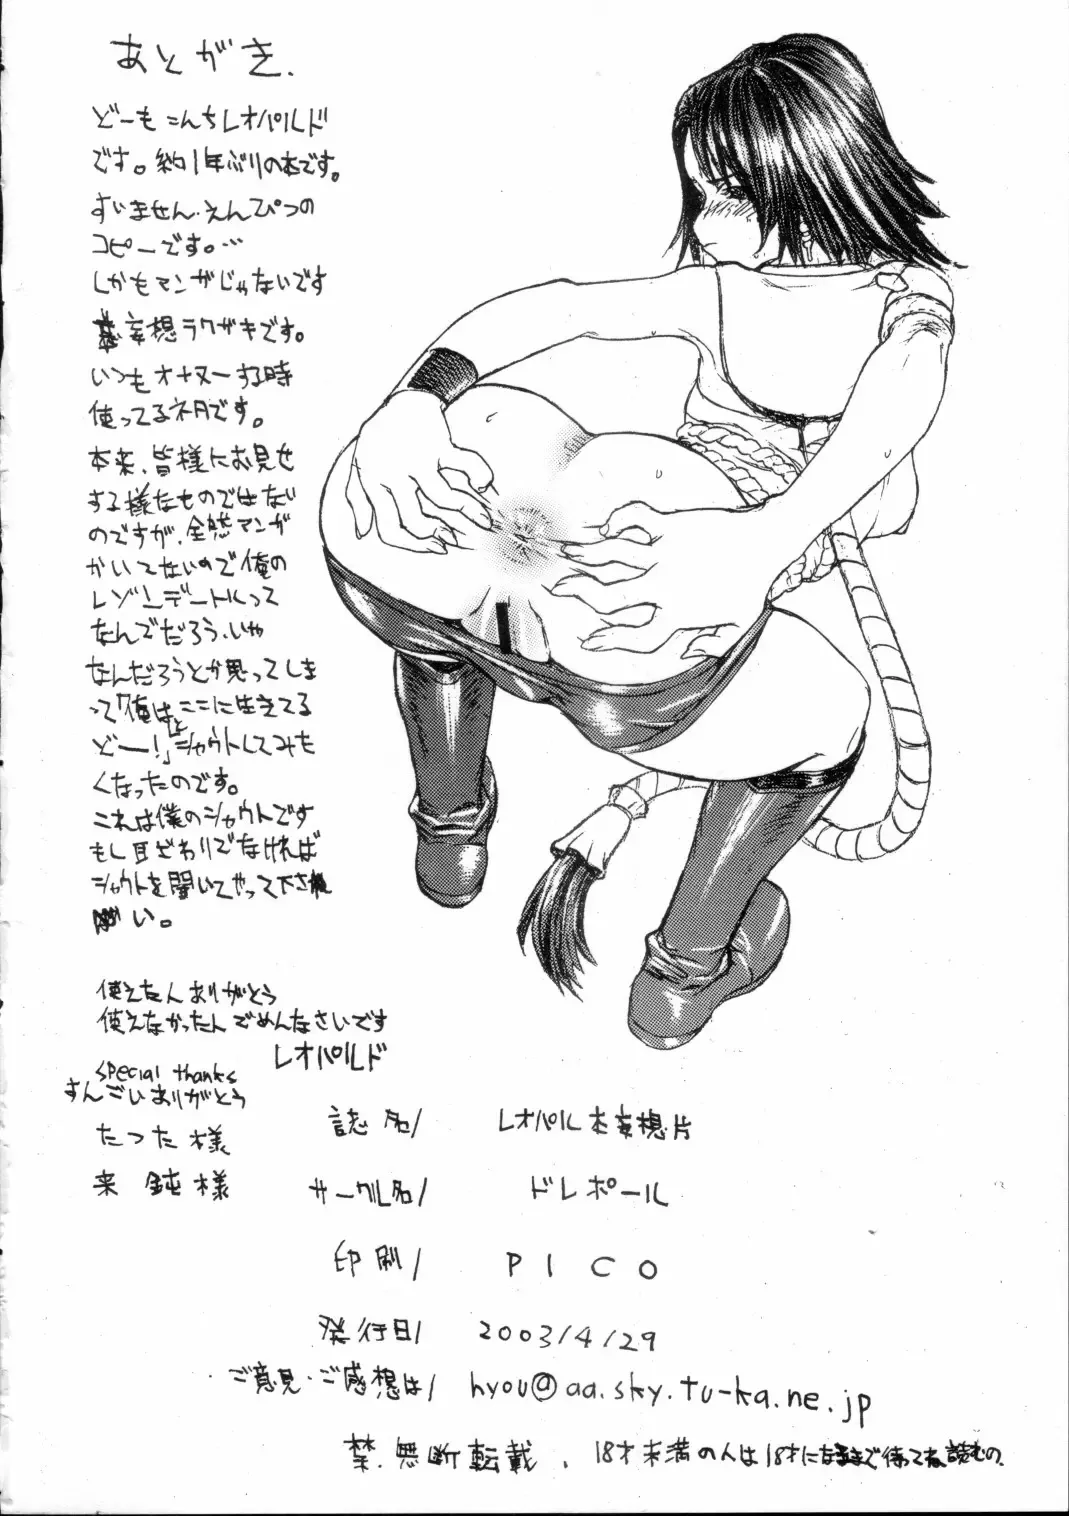 あとがき.
どーもこんちレオパルド
です。約1年ぶりの本です。
すいません・えんぴつの
コピーです。…
しかもマンガじゃないです
妄想ラクガキです。
いつもオナヌーする時
使ってるネタです。
本来、皆様にお見せ
する様なものではない
のですが、全然マンガ
かいてないので俺の
レゾンデートルって
なんでだろう・いや
なんだろうとか思ってしま
って「俺はここに生きてる
どー!」とシャウトしてみた
くなったのです。
これは僕のシャウトです
もし耳ざわりでなければ
シャウトを聞いてやって下さ
い。
使えたんありがとう
使えなかったんでめんなさいです
レオパルド
special thanks
すんごいありがとう
たつた様
来鈍様
誌名/ レオパル本妄想片
サークル名/ ドレポール
印刷/ PICO
発行日/ 2003/4/29
ご意見・ご感想は/ hyou@aa.sky.tu-ka.ne.jp
禁・無断転載、18才未満の人は18才になるまで待ってね読むの.